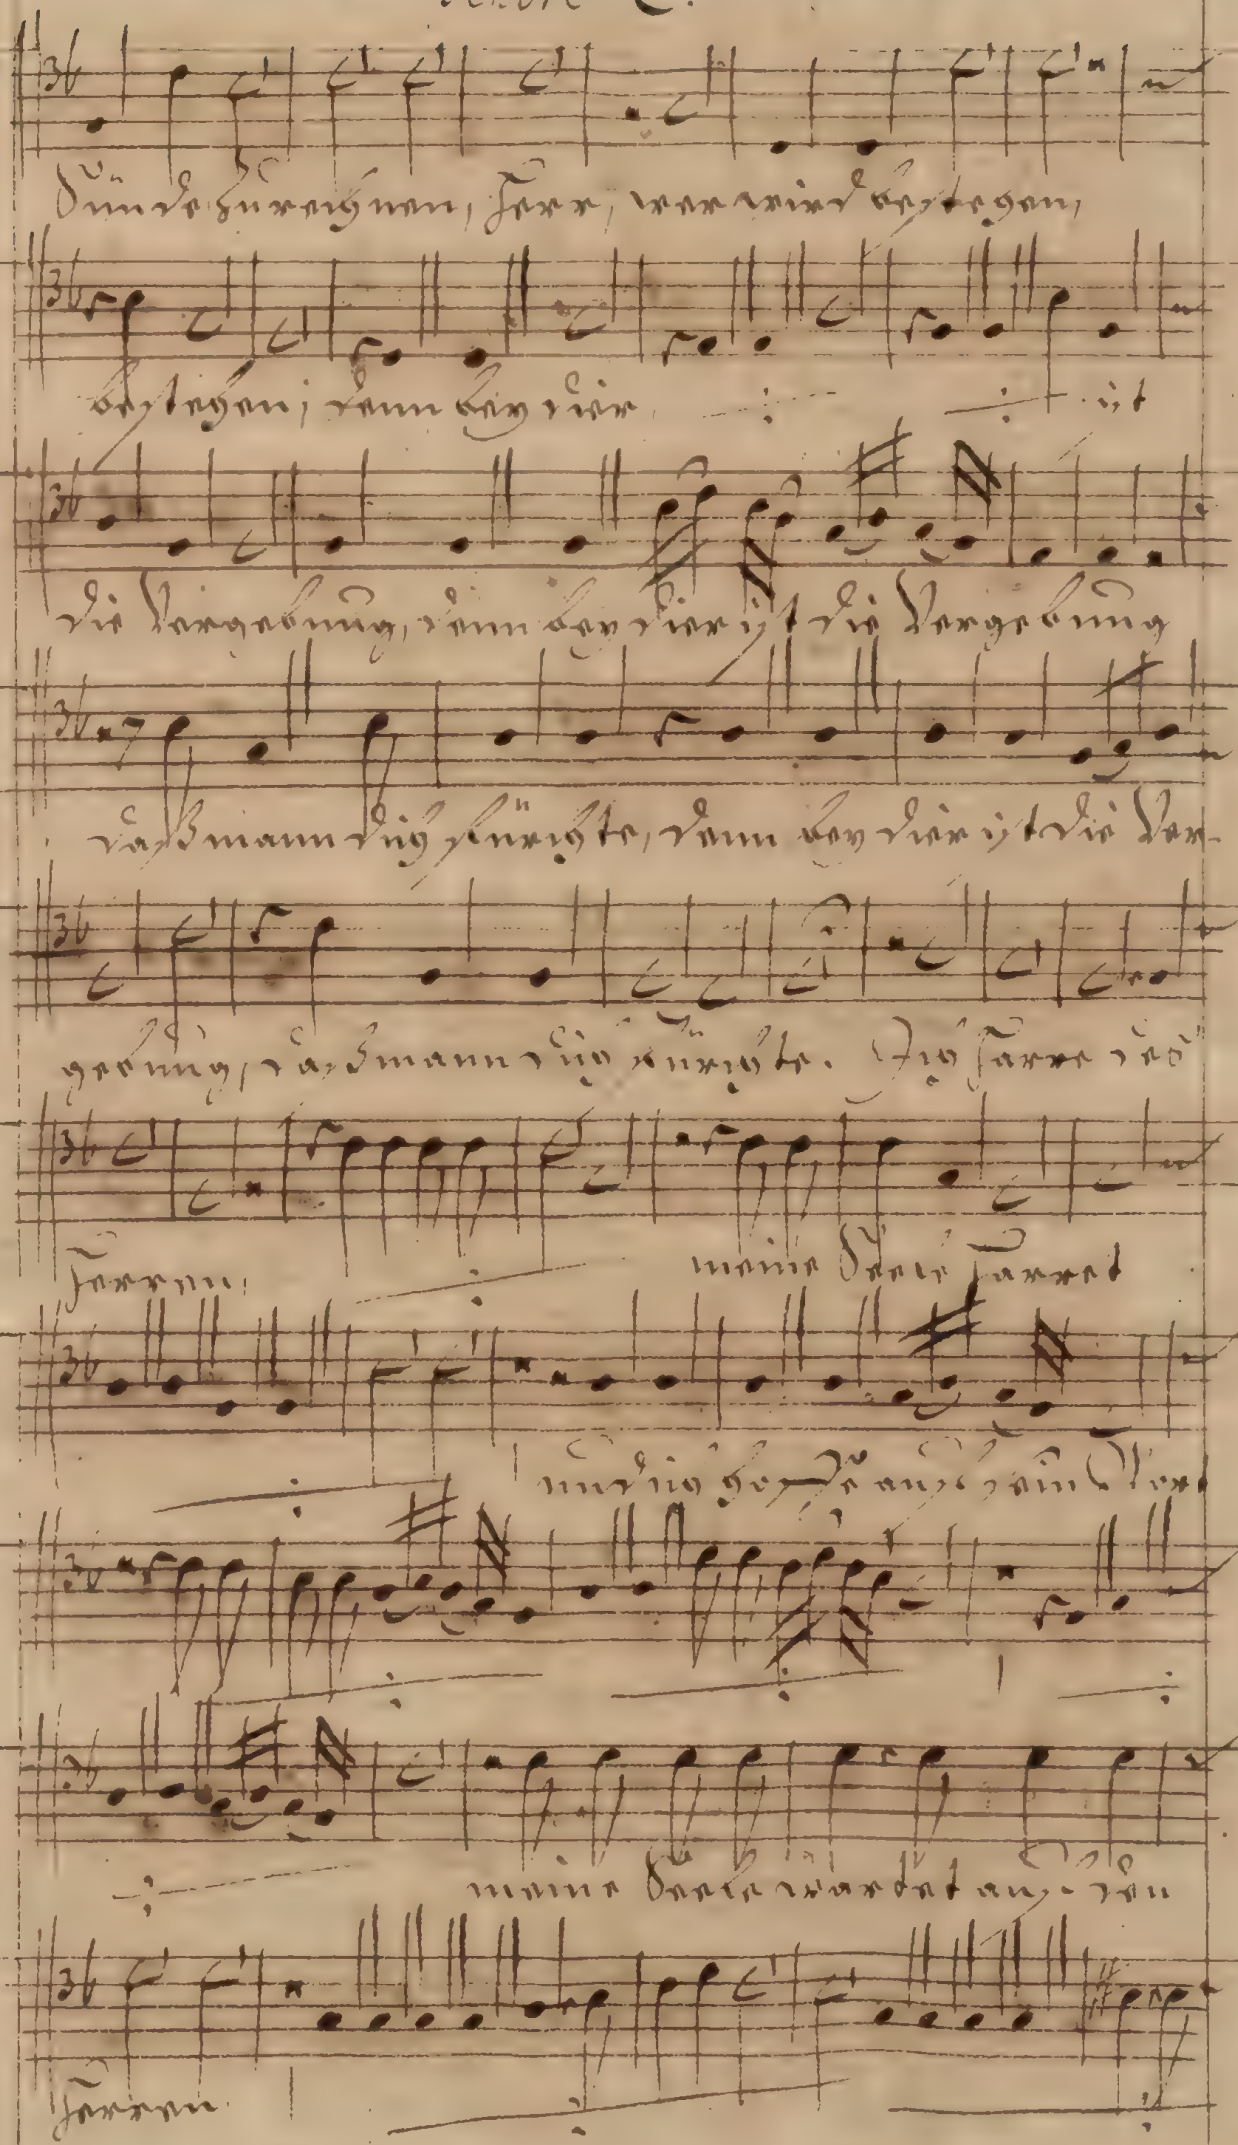 Sünde zureichnen, Herr, wer wird bestehen,
bestehen, denn bey dier ist
die Vergebung, denn bey dier ist die Vergebung
daß mann dich fürchte, denn bey dier ist die Ver-
gebung, daß mann dich fürchte. Ich harre des
Herren, meine Seele harret
und ich hoffe auf sein Wort
meine Seele wartet auf den
Herren.